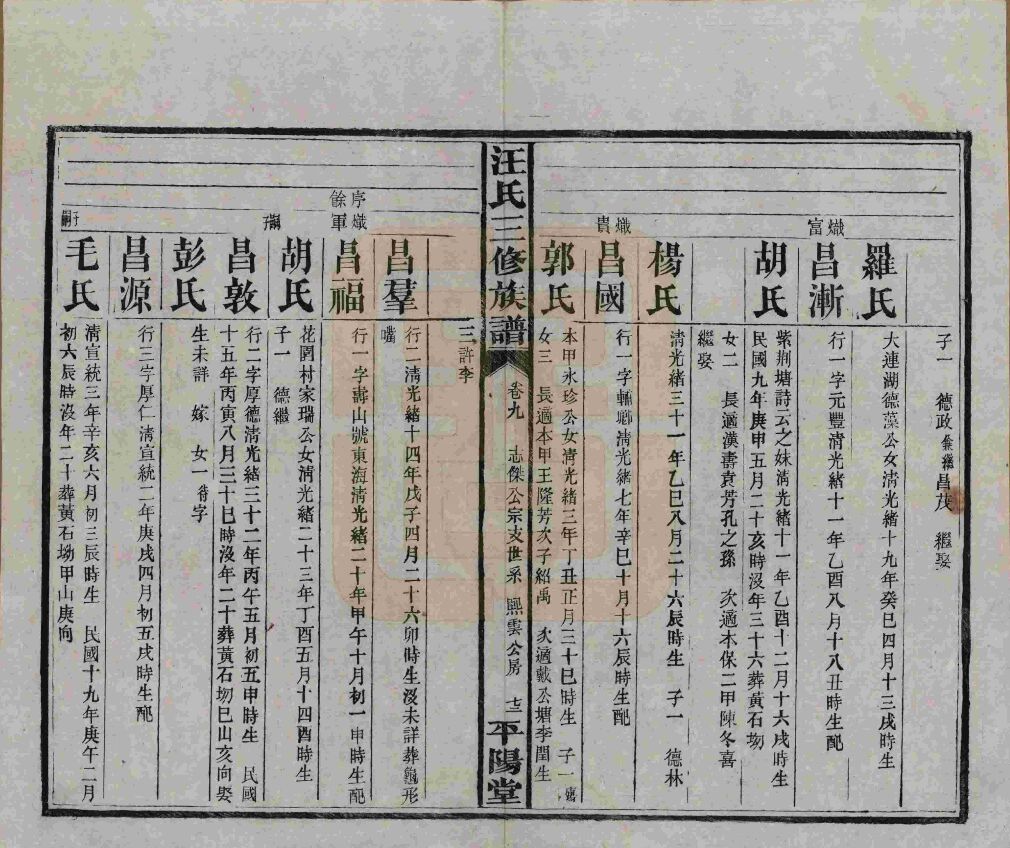 子一 德政 昌茂 繼娶
羅氏
大連湖德藻公女淸光緒十九年癸巳四月十三戌時生
熾富
昌漸
行一字元豐淸光緒十一年乙酉八月十八丑時生配
胡氏
紫荆塘詩云之妹淸光緒十一年乙酉十二月十六戌時生
民國九年庚申五月二十亥時沒年三十六葬黃石坳
女二 長適漢壽袁芳孔之孫 次適本保二甲陳冬喜
繼娶
楊氏
淸光緒三十一年乙巳八月二十六辰時生 子一 德林
熾貴
昌國
行一字輔卿淸光緒七年辛巳十月十六辰時生配
郭氏
本甲永珍公女淸光緒三年丁丑正月三十巳時生 子一
女三 長適本甲王隆芳次子紹禹 次適戴公塘李閏生
汪氏三修族譜
卷九 志傑公宗支世系 熙雲公房 十二 平陽堂
三許李
昌羣
行二淸光緒十四年戊子四月二十六卯時生沒未詳葬龜形
嘴
序餘
熾軍
昌福
行一字壽山號東海淸光緒二十年甲午十月初一申時生配
胡氏
花園村家瑞公女淸光緒二十三年丁酉五月十四酉時生
子一 德繼
嗣子
昌敦
行二字厚德淸光緒三十二年丙午五月初五申時生 民國
十五年丙寅八月三十巳時沒年二十葬黃石坳巳山亥向娶
彭氏
生未詳 嫁 女一 待字
昌源
行三字厚仁淸宣統二年庚戌四月初五戌時生配
子嗣
毛氏
淸宣統三年辛亥六月初三辰時生 民國十九年庚午二月
初六辰時沒年二十葬黃石坳甲山庚向